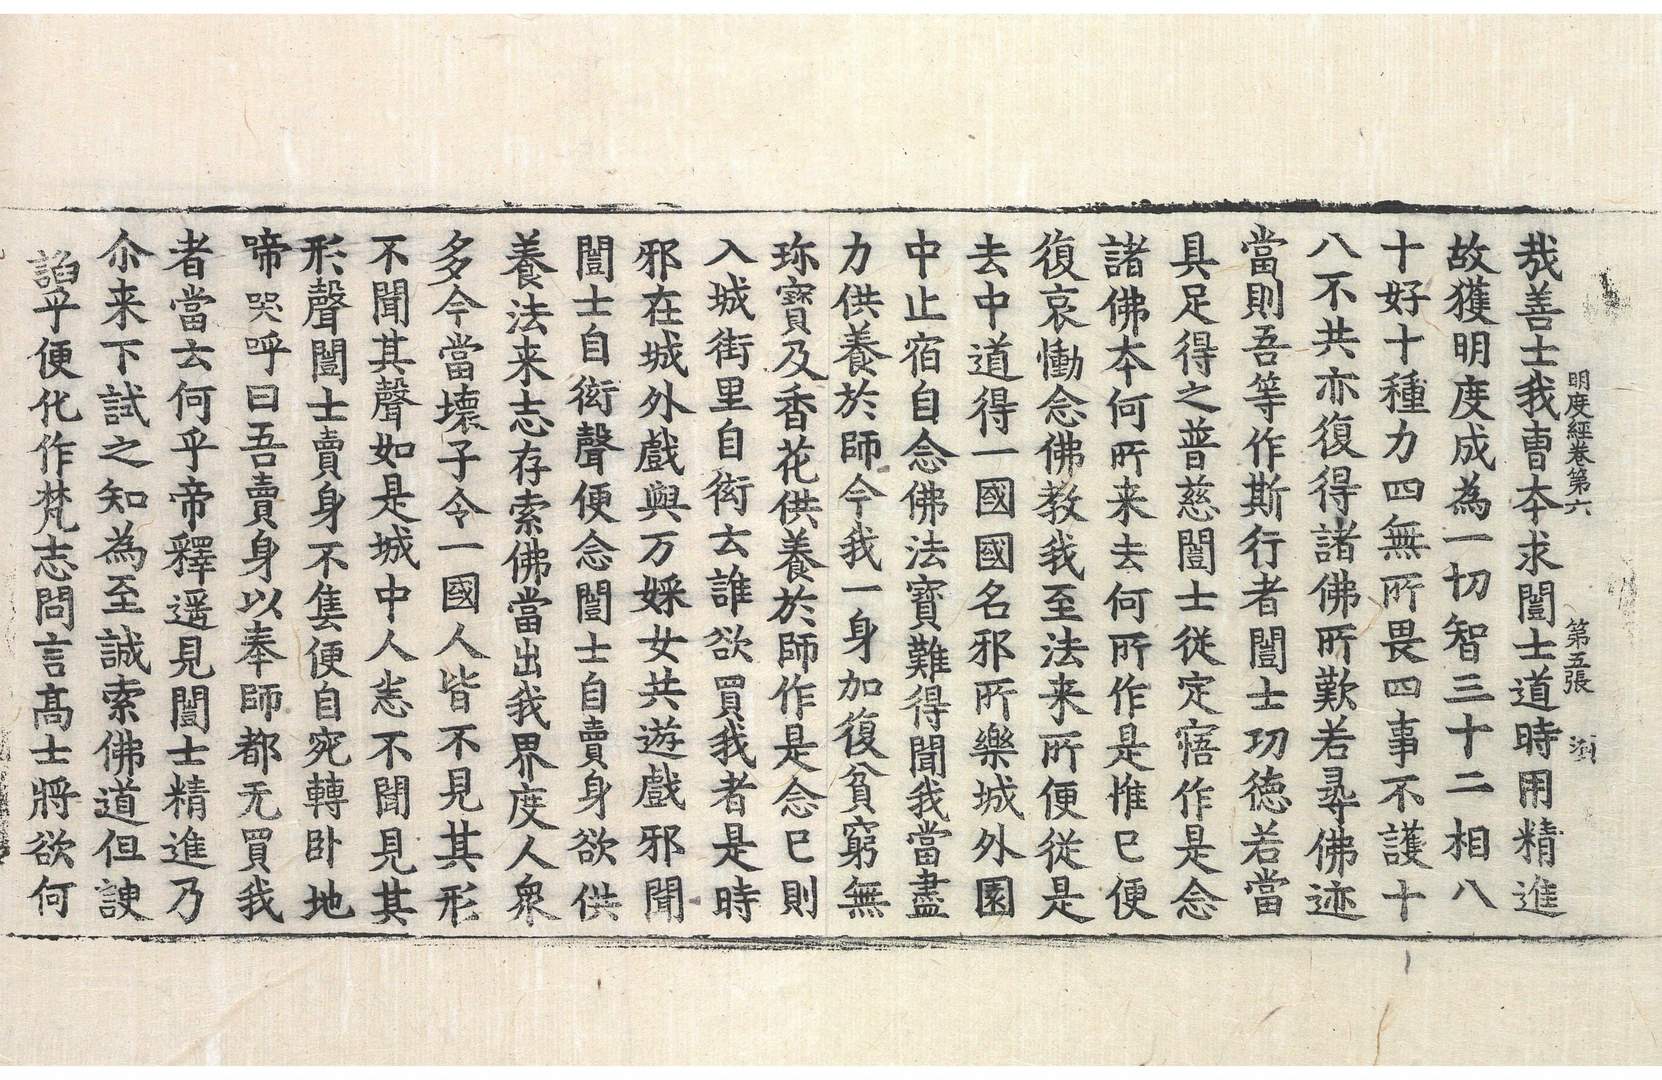 明度經卷第六 第五張
哉善士我曺夲求闓士道時用精進
故獲明度成為一切智三十二相八
十好十種力四無所畏四事不護十
八不共亦復得諸佛所歎若尋佛迹
當則吾等作斯行者闓士功德若當
具足得之普慈闓士從定寤作是念
諸佛夲何所来去何所作是惟已便
復哀慟念佛教我至法来所便從是
去中道得一國國名邪所樂城外園
中止宿自念佛法寶難得聞我當盡
力供養於師今我一身加復貧窮無
珎寶及香花供養於師作是念已則
入城街里自衒云誰欲買我者是時
邪在城外戲與万婇女共遊戲邪聞
闓士自衒聲便念闓士自賣身欲供
養法来志存索佛當出我界度人衆
多今當壊子令一國人皆不見其形
不聞其聲如是城中人㤀不聞見其
形聲闓士賣身不售便自宛轉卧地
啼哭呼曰吾賣身以奉師都无買我
者當云何乎帝釋遥見闓士精進乃
尒来下試之知為至誠索佛道但諛
謟乎便化作梵志問言髙士將欲何